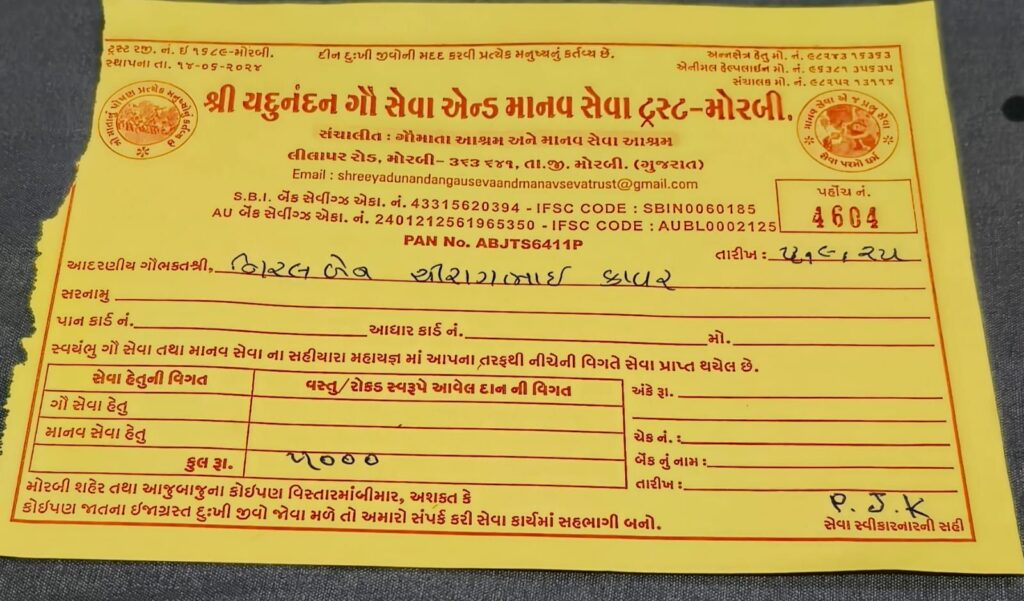 ટ્રસ્ટ રજી. નં. ઈ ૧૬૮૯-મોરબી.
સ્થાપના તા. ૧૪-૦૬-૨૦૨૪
દીન દુઃખી જીવોની મદદ કરવી પ્રત્યેક મનુષ્યનું કર્તવ્ય છે.
અન્નક્ષેત્ર હેતુ મો. નં. ૯૮૨૪૩ ૧૬૩૬૩
એનીમલ હેલ્પલાઈન મો. નં. ૯૬૩૮૧ ૩૫૬૩૫
સંચાલક મો. નં. ૯૮૨૫૨ ૧૩૧૧૪
શ્રી યદુનંદન ગૌ સેવા એન્ડ માનવ સેવા ટ્રસ્ટ-મોરબી.
સંચાલીત : ગૌમાતા આશ્રમ અને માનવ સેવા આશ્રમ
લીલાપર રોડ, મોરબી- ૩૬૩ ૬૪૧, તા.જી. મોરબી. (ગુજરાત)
Email : shreeyadunandangausevaandmanavsevatrust@gmail.com
S.B.I. બેંક સેવીંગ્ઝ એકા. નં. 43315620394 - IFSC CODE : SBIN0060185
AU બેંક સેવીંગ્ઝ એકા. નં. 2401212561965350 - IFSC CODE : AUBL0002125
PAN No. ABJTS6411P
માનવ સેવા એ જ પ્રભુ સેવા
સેવા પરમો ધર્મ
પહોંચ નં.
4604
તારીખ : ૫,૯,૨૫
આદરણીય ગૌભક્તશ્રી, બેન ચીરાગભાઇ કાવર
સરનામુ
પાન કાર્ડ નં. આધાર કાર્ડ નં. મો.
સ્વયંભુ ગૌ સેવા તથા માનવ સેવા ના સહીયારા મહાયજ્ઞ માં આપના તરફથી નીચેની વિગતે સેવા પ્રાપ્ત થયેલ છે.
સેવા હેતુની વિગત વસ્તુ/રોકડ સ્વરૂપે આવેલ દાન ની વિગત
ગૌ સેવા હેતુ
માનવ સેવા હેતુ
કુલ રૂા. ૫૦૦૦
અંકે રૂા.
ચેક નં. :
બેંક નું નામ :
તારીખ :
મોરબી શહેર તથા આજુબાજુના કોઈપણ વિસ્તારમાંબીમાર, અશકત કે
કોઈપણ જાતના ઈજાગ્રસ્ત દુઃખી જીવો જોવા મળે તો અમારો સંપર્ક કરી સેવા કાર્યમાં સહભાગી બનો.
P. J. K
સેવા સ્વીકારનારની સહી